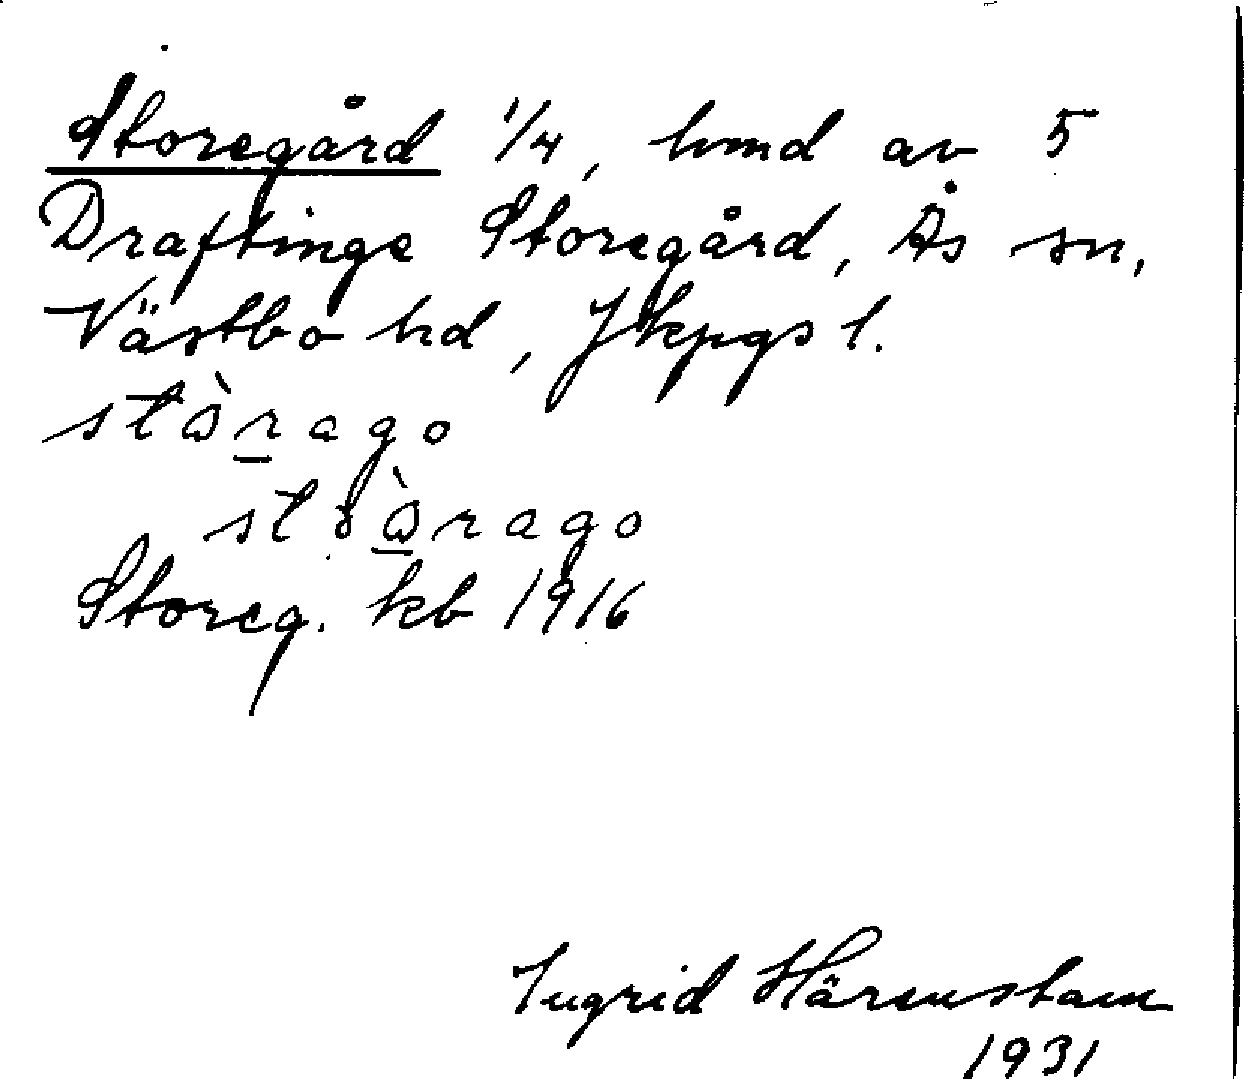 Storegård 1/4, hmd av 5
Draftinge Storegård, Ås sn,
Västbo hd, Jkpgs l.
Storeg. kb 1916
Ingrid Härenstam
1931